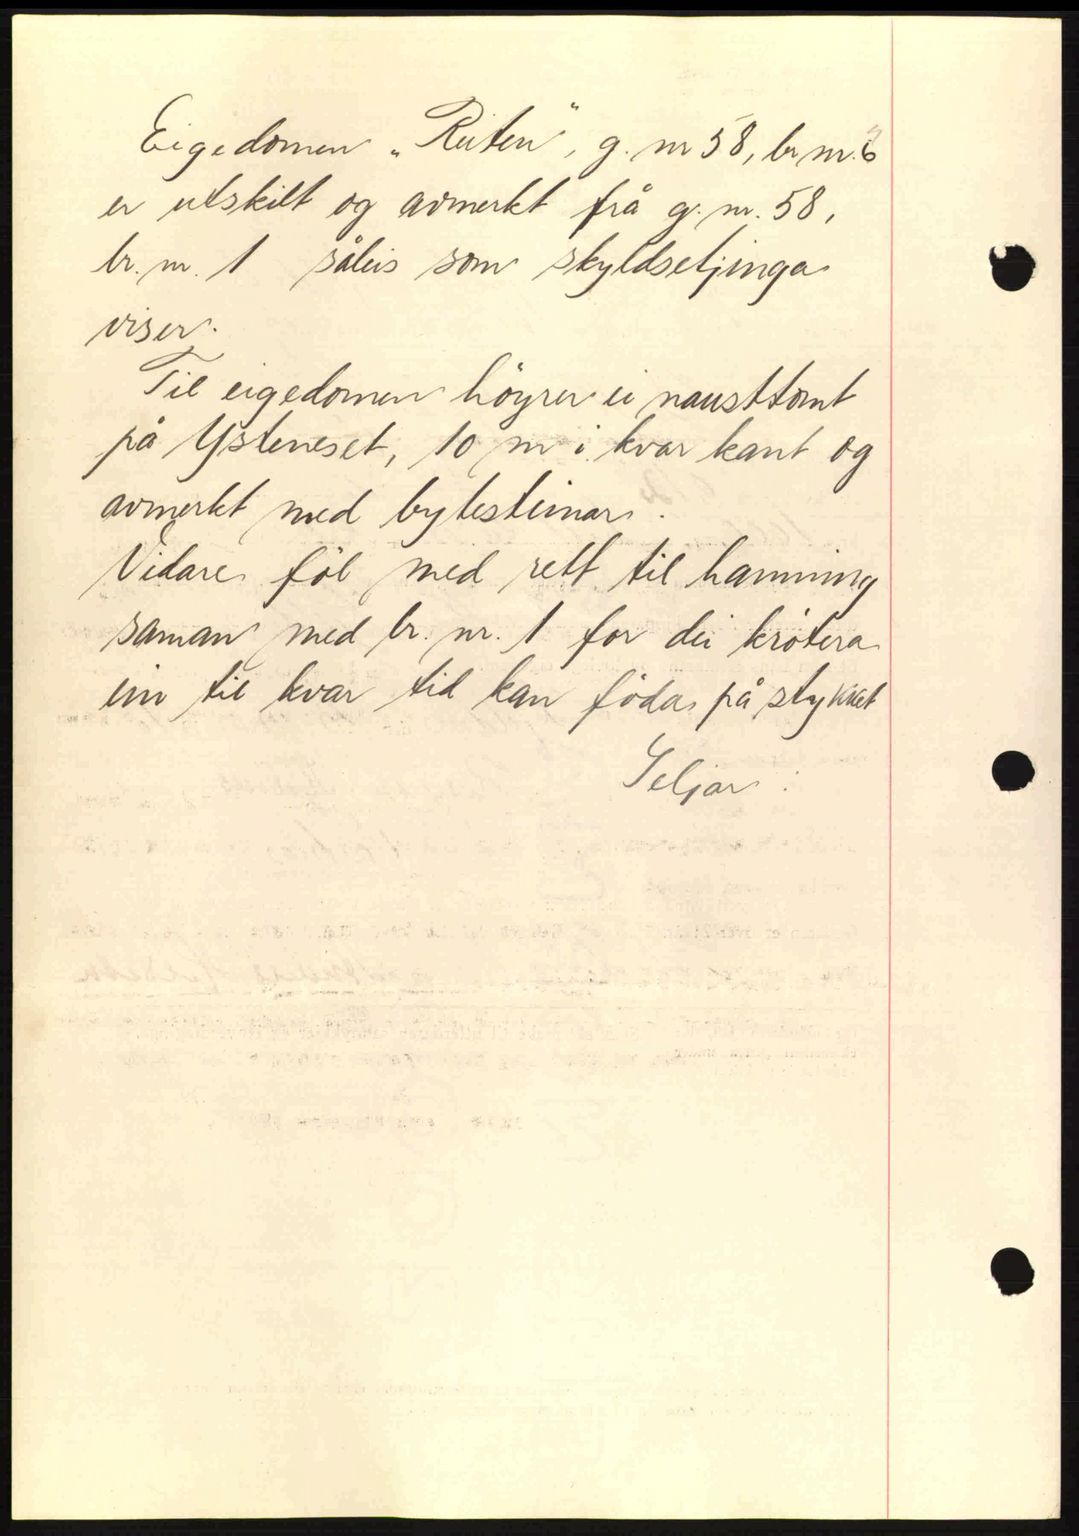 Eigedomen „Reiten“, g. nr 58, br nr. 6
er utskilt og avmerkt frå g. nr. 58,
br. nr. 1 såleis som skyldsetjinga
viser.
Til eigedomen höyrer ei nausttomt
på Ysteneset, 10 m i kvar kant og
avmerkt med bytesteinar.
Vidare föl med rett til hamning
saman med br. nr. 1 for dei krötera
ein til kvar tid kan föda på stykket
Seljar: